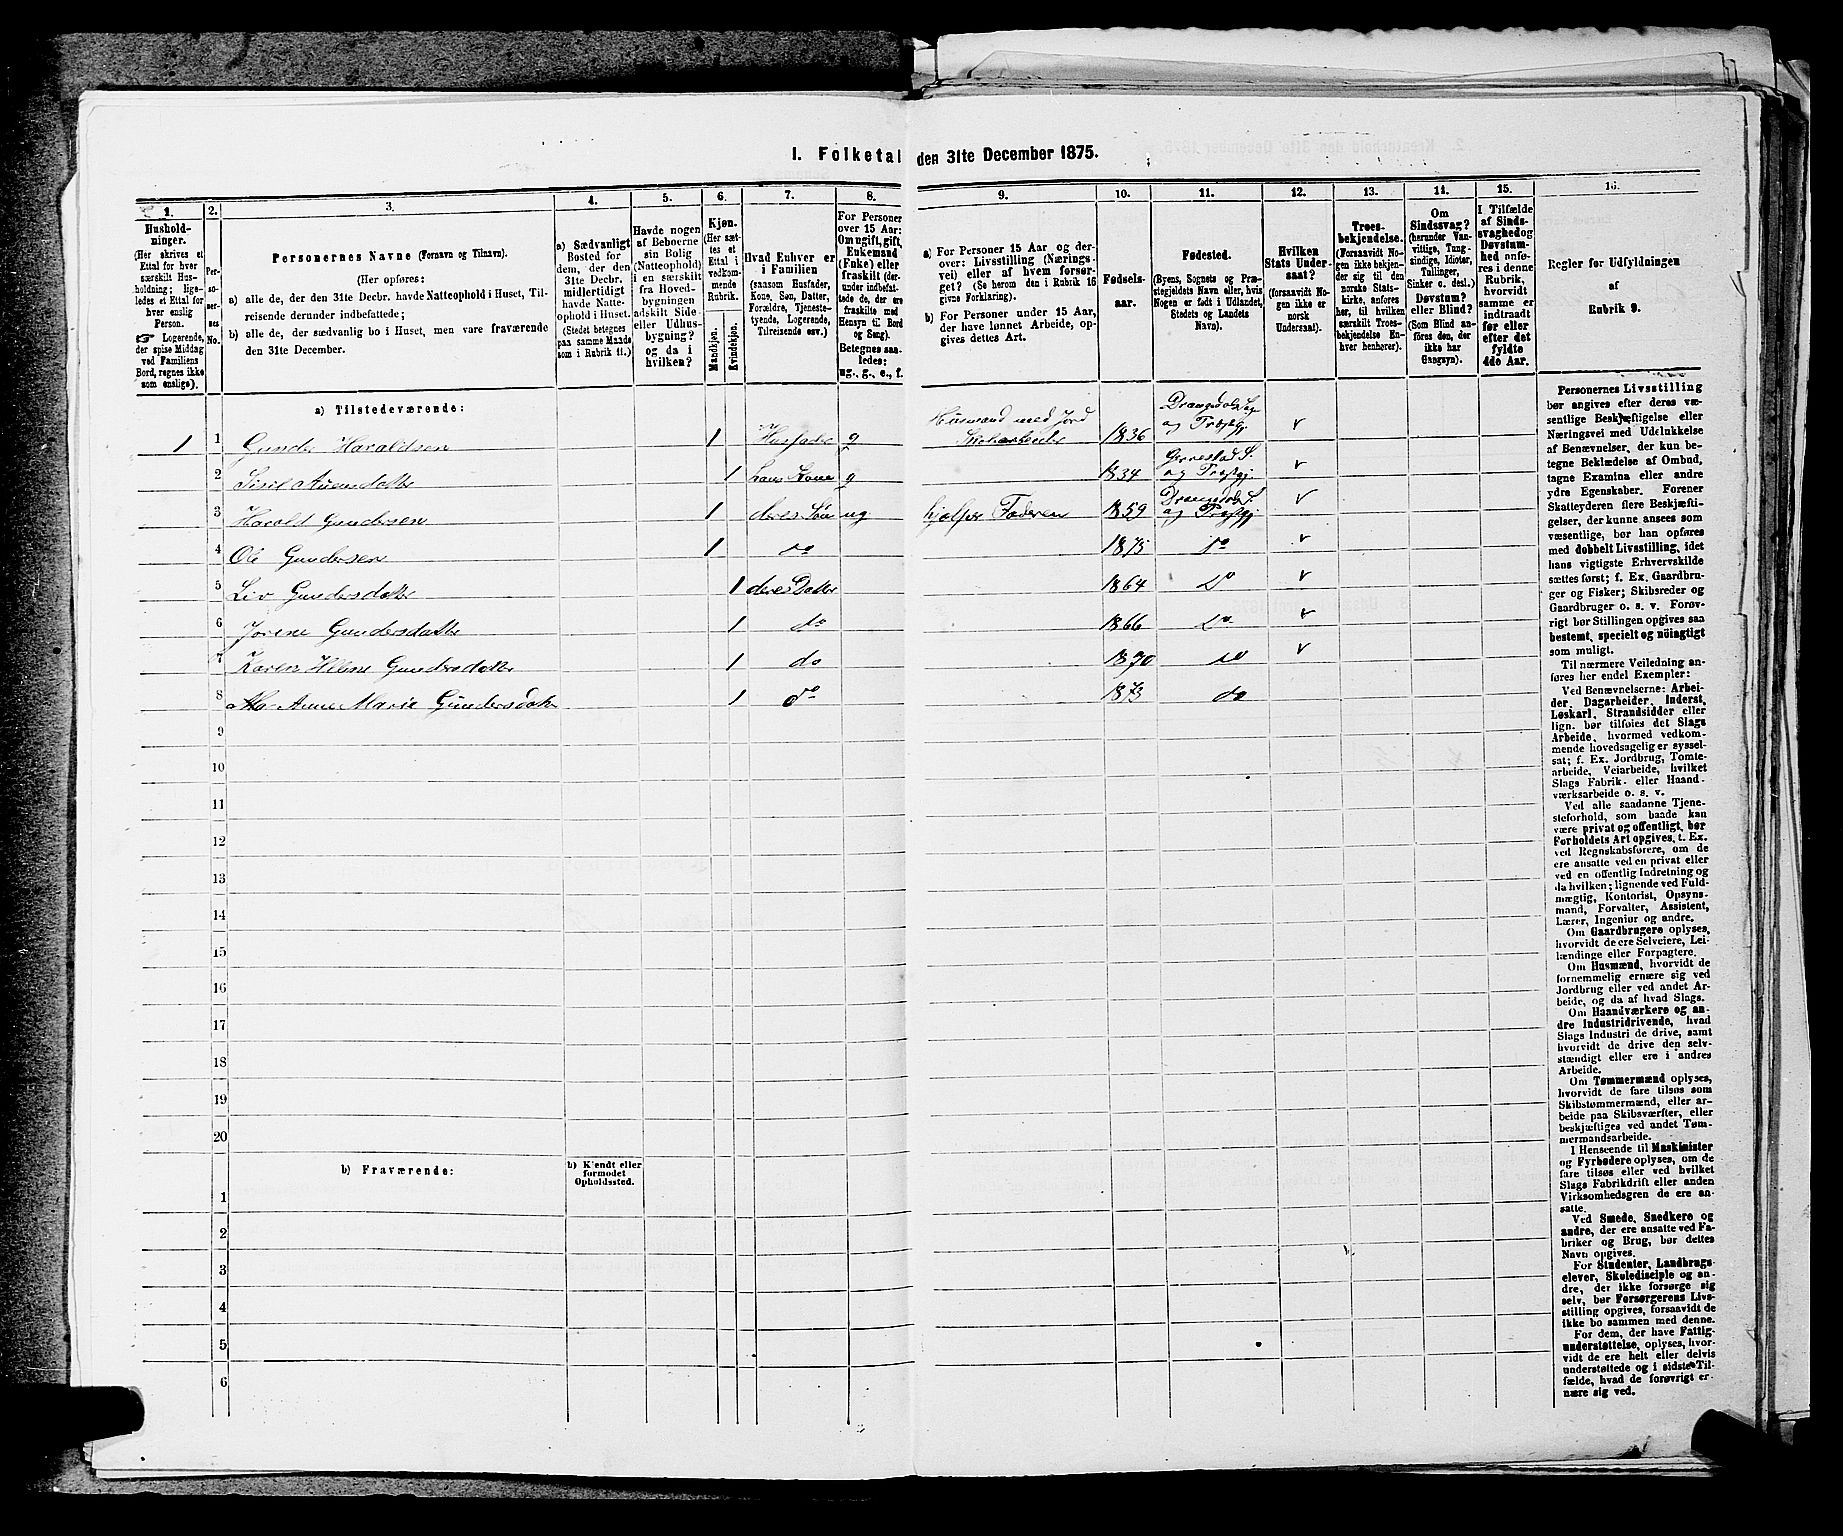 I. Folketal den 31te December 1875.
1. 2. 3. 4. 5. 6. 7. 8. 9. 10. 11. 12. 13. 14. 15. 16.
Hushold-
ninger.
(Her skrives et
Ettal for hver
særskilt Hus-
holdning; lige-
ledes et Ettal for
hver enslig
Person.
☞ Logerende,
der spise Middag
ved Familiens
Bord, regnes ikke
som enslige).
Per-
so-
ner-
nes
No.
Personernes Navne (Fornavn og Tilnavn).
(Her opføres:
a) alle de, der den 31te Decbr. havde Natteophold i Huset, Til-
reisende derunder indbefattede;
b) alle de, der sædvanlig bo i Huset, men vare fraværende
den 31te December.
a) Sædvanligt
Bosted for
dem, der den
31te Decbr.
midlertidigt
havde Natte-
ophold i Huset.
(Stedet betegnes
paa samme Maade
som i Rubrik 11.)
Havde nogen
af Beboerne
sin Bolig
(Natteophold)
i en særskilt
fra Hoved-
bygningen
adskilt Side-
eller Udhus-
bygning?
og da i
hvilken?
Kjøn.
(Her sæt-
tes et
Ettal i
vedkom-
mende
Rubrik.
Mandkjøn.
Kvindekjøn.
Hvad Enhver er
i Familien
(saasom Husfader,
Kone, Søn, Datter,
Forældre, Tjeneste-
tyende, Logerende,
Tilreisende osv.)
For Personer
over 15 Aar:
Om ugift, gift,
Enkemand
(Enke) eller
fraskilt (der-
under indbefat-
tede de, der ere
fraskilte med
Hensyn til Bord
og Seng).
Betegnes saa-
ledes:
ug., g., e., f.
a) For Personer 15 Aar og der-
over: Livsstilling (Nærings-
vei) eller af hvem forsør-
get? (Se herom den i Rubrik 16
givne Forklaring).
b) For Personer under 15 Aar,
der have lønnet Arbeide, op-
gives dettes Art.
Fødsels-
aar.
Fødested.
(Byens, Sognets og Præ-
stegjeldets Navn eller, hvis
Nogen er født i Udlandet,
Stedets og Landets
Navn).
Hvilken
Stats Under-
saat?
(forsaavidt No-
gen ikke er
norsk
Undersaat).
Troes-
bekjendelse.
(Forsaavidt No-
gen ikke bekjen-
der sig til den
norske Stats-
kirke, anføres
her, til hvilken
særskilt Troes-
bekjendelse En-
hver henhører).
Om
Sindssvag?
(herunder Van-
vittige, Tung-
sindige, Idioter,
Tullinger,
Sinker o. desl.)
Døvstum?
eller Blind?
(Som Blind an-
føres den, der
ikke har
Gangsyn).
I Tilfælde
af Sinds-
svaghed og
Døvstum-
hed anfø-
res i denne
Rubrik,
hvorvidt
samme er
indtraadt
før eller
efter det
fyldte
4de Aar.
Regler for Udfyldningen
af
Rubrik 9.
a) Tilstedeværende:
1 1 Gunder Haraldsen 1 Husfader g Husmand med Jord 1836 Drangedals Sogn og Præstgj
2 Sisel Auensdatter 1 hans Kone g 1834 Gjerrestad S. og Præstgj
3 Harald Gundersen 1 deres Søn ug hjelper Faderen 1859 Drangedals S. og Præstgj
4 Ole Gundersen 1 do 1875 do
5 Liv Gundersdatter 1 deres Datter 1864 Do
6 Jorene Gundersdatter 1 do 1866 Do
7 Karen Heline Gundersdatter 1 do 1870 do
8 Anne Marie Gundersdatter 1 do 1873 do
9
10
11
12
13
14
15
16
17
18
19
20
b) Fraværende:
b) Kjendt eller
formodet
Opholdssted.
1
2
3
4
5
6
Personernes Livsstilling
bør angives efter deres væ-
sentlige Beskjæftigelse eller
Næringsvei med Udelukkelse
af Benævnelser, der kun be-
tegne Beklædelse af Ombud,
tagne Examina eller andre
ydre Egenskaber. Forener
Skatteyderen flere Beskjæfti-
gelser, der kunne ansees som
væsentlige, bør han opføres
med dobbelt Livsstilling, idet
hans vigtigste Erhvervskilde
sættes først; f. Ex. Gaardbru-
ger og Fisker; Skibsreder og
Gaardbruger o. s. v. Forøv-
rigt bør Stillingen opgives saa
bestemt, specielt og nöiagtigt
som muligt.
Til nærmere Veiledning an-
føres her endel Exempler:
Ved Benævnelserne: Arbei-
der, Dagarbeider, Inderst,
Løskarl, Strandsidder eller
lign. bør tilføies det Slags
Arbeide, hvormed vedkom-
mende hovedsagelig er syssel-
sat; f. Ex. Jordbrug, Tomte-
arbeide, Veiarbeide, hvilket
Slags Fabrik- eller Haand-
værksarbeide o. s. v.
Ved alle saadanne Tjene-
steforhold, som baade kan
være privat og offentligt, bør
Forholdets Art opgives, t. Ex.
ved Regnskabsførere, om de
ere ansatte ved en privat eller
ved en offentlig Indretning og
da hvilken; lignende ved Fuld-
mægtig, Kontorist, Opsyns-
mand, Forvalter, Assistent,
Lærer, Ingeniør og andre.
Om Gaardbrugere oplyses,
hvorvidt de ere Selveiere, Lei-
lændinge eller Forpagtere.
Om Husmænd, hvorvidt de
fornemmelig ernære sig ved
Jordbrug eller ved andet Ar-
beide, og da af hvad Slags.
Om Haandværkere og an-
dre Industridrivende, hvad
Slags Industri de drive, samt
hvorvidt de drive den selv-
stændigt eller ere i andres
Arbeide.
Om Tømmermænd oplyses,
hvorvidt de fare tilsøs som
Skibstømmermænd, eller ar-
beide paa Skibsværfter, eller
beskjæftiges ved andet Tøm-
mermandsarbeide.
I Henseende til Maskinister
og Fyrbødere oplyses, om de
fare tilsøs eller ved hvilket
Slags Fabrikdrift eller anden
Virksomhedsgren de ere an-
satte.
Ved Smede, Snedkere og
andre, der ere ansatte ved Fa-
briker og Brug, bør dettes
Navn opgives.
For Studenter, Landbrugs-
elever, Skoledisciple og an-
dre, der ikke forsørge sig
selv, bør Forsørgerens Livs-
stilling opgives, forsaavidt de
ikke bo sammen med denne.
For dem, der have Fattig-
understøttelse, oplyses, hvor-
vidt de ere helt eller delvis
understøttede og i sidste Til-
fælde, hvad de forøvrigt er-
nære sig ved.